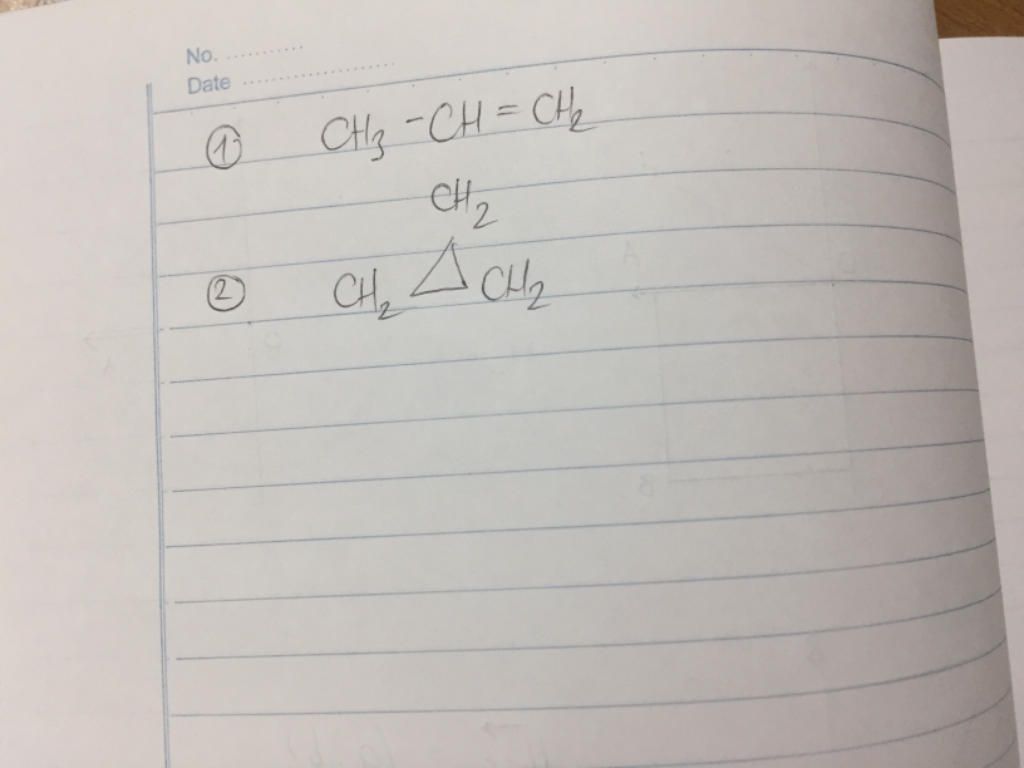 No. ...........
Date .....................
① CH₃ - CH = CH₂
CH₂
② CH₂ △ CH₂